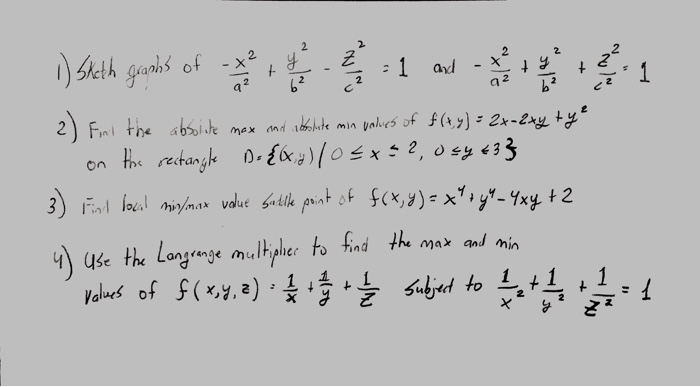 1) Sketh graphs of -x²/a² + y²/b² - z²/c² = 1 and - x²/a² + y²/b² + z²/c² = 1
2) Find the absolute max and absolute min values of f(x,y) = 2x-2xy+y²
on the rectangle D={(x,y)/0≤x≤2, 0≤y≤3}
3) Find local min/max value saddle point of f(x,y)=x⁴+y⁴-4xy+2
4) Use the Langrange multiplier to find the max and min
values of f(x,y,z) = 1/x + 1/y + 1/z subject to 1/x² + 1/y² + 1/z² = 1